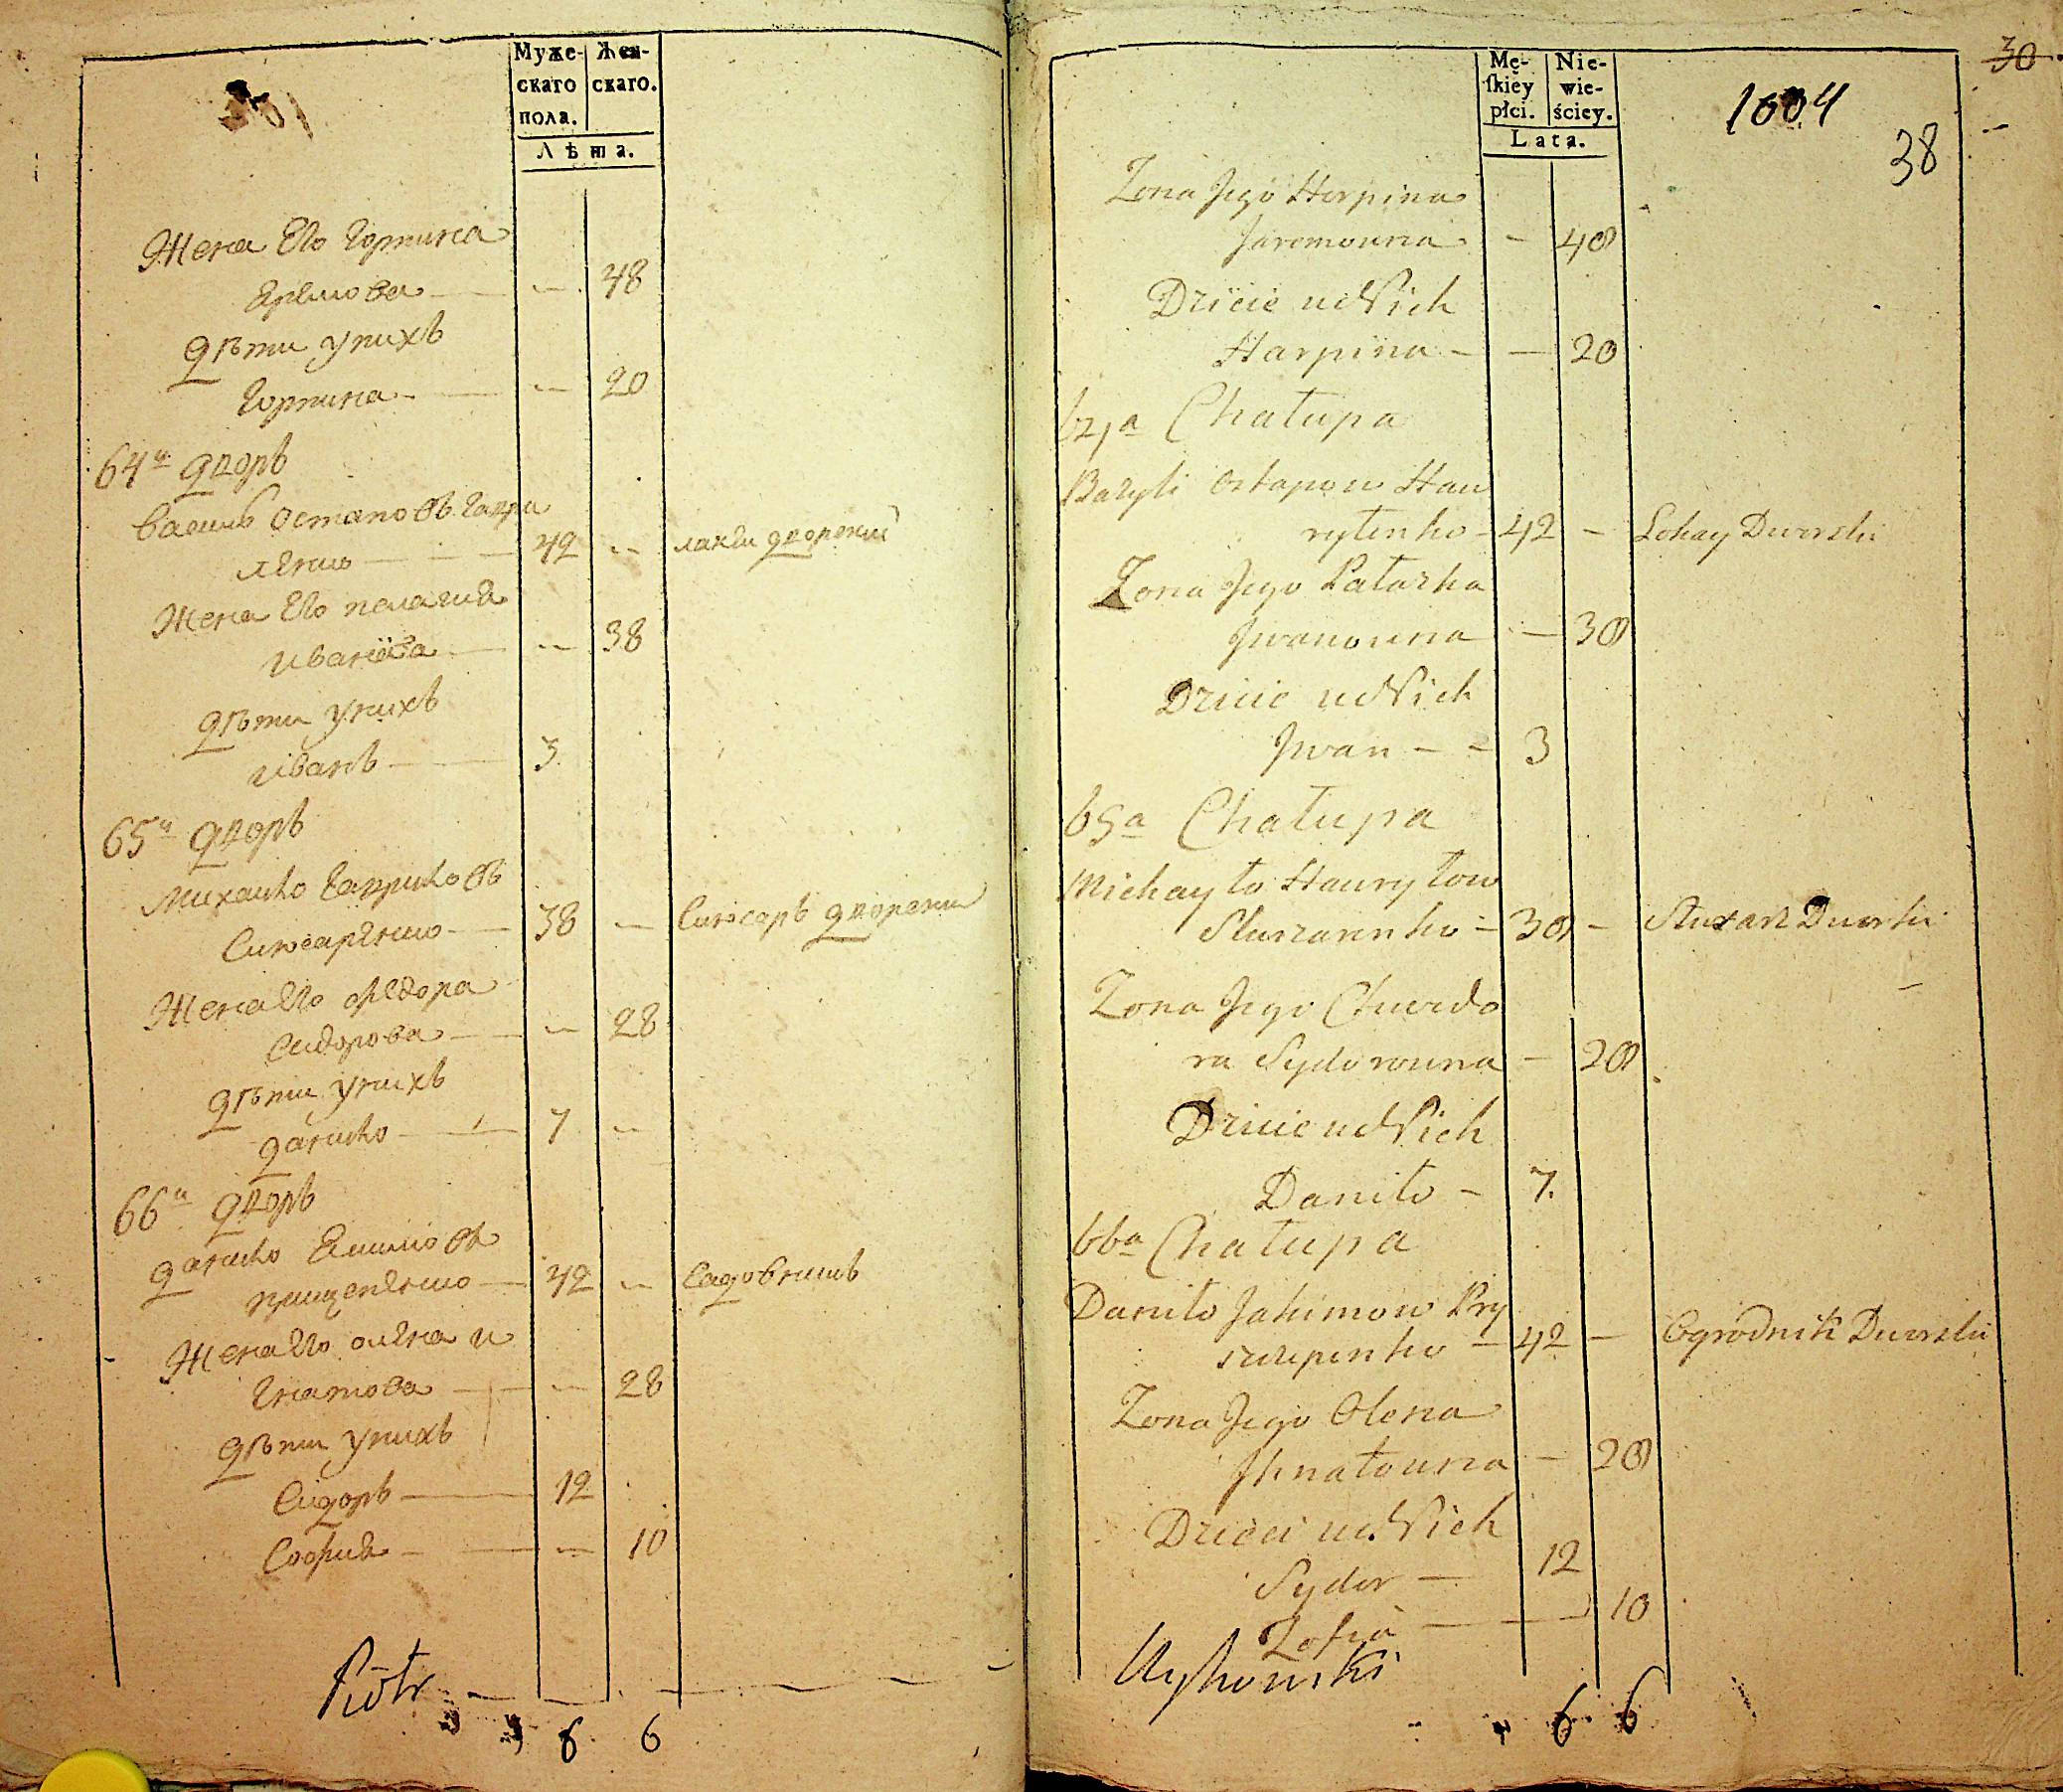 Муже-
скаго
пола.
Жен-
скаго.
Лѣта.
Жена Его Горпина
Яремова — 48
Дѣти у нихъ
Горпина — 20
64й Дворъ
Василь Остаповъ Гаври
ленко — 42 — лакей дворский
Жена Его пелагия
Иванова — 38
Дѣти у нихъ
Иванъ — 3
65й Дворъ
Михайло Гавриловъ
Слюсаренко — 38 — Слюсаръ дворский
Жена Его Федора
Сидорова — 28
Дѣти у нихъ
Данило — 7 —
66й Дворъ
Данило Якимовъ
прищепенко — 42 — Садовникъ
Жена Его олена и
гнатова — 28
Дѣти у нихъ
Сидоръ — 12
София — 10
Piotr
6 6
30
Mę-
ſkiey
płci.
Nie-
wie-
ściey.
Lata.
1004
38
Zona Jego Horpina
Jaremowna — 48
Dziecie u Nich
Harpina — 20
64a Chałupa
Bazyli Ostapow Haw
rylenko — 42 — Lokay Dworski
Zona Jego Pałazka
Jwanowna — 38
Dziecie u Nich
Jwan — 3
65a Chałupa
Michayło Hawryłow
Slusarenko — 38 — Slusarz Dworski
Zona Jego Chwedo
ra Sydorowna — 28
Dziecie u Nich
Daniło — 7.
66a Chałupa
Daniło Jakimow Pry
szczepenko — 42 — Ogrodnik Dworski
Zona Jego Olena
Jhnatowna — 28
Dzieci u Nich
Sydor — 12
Zofia — 10
6 6